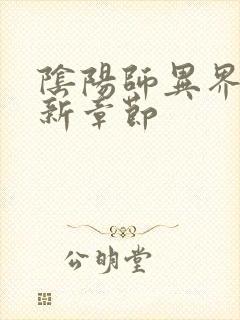 陰陽師異界
新章節
公明堂